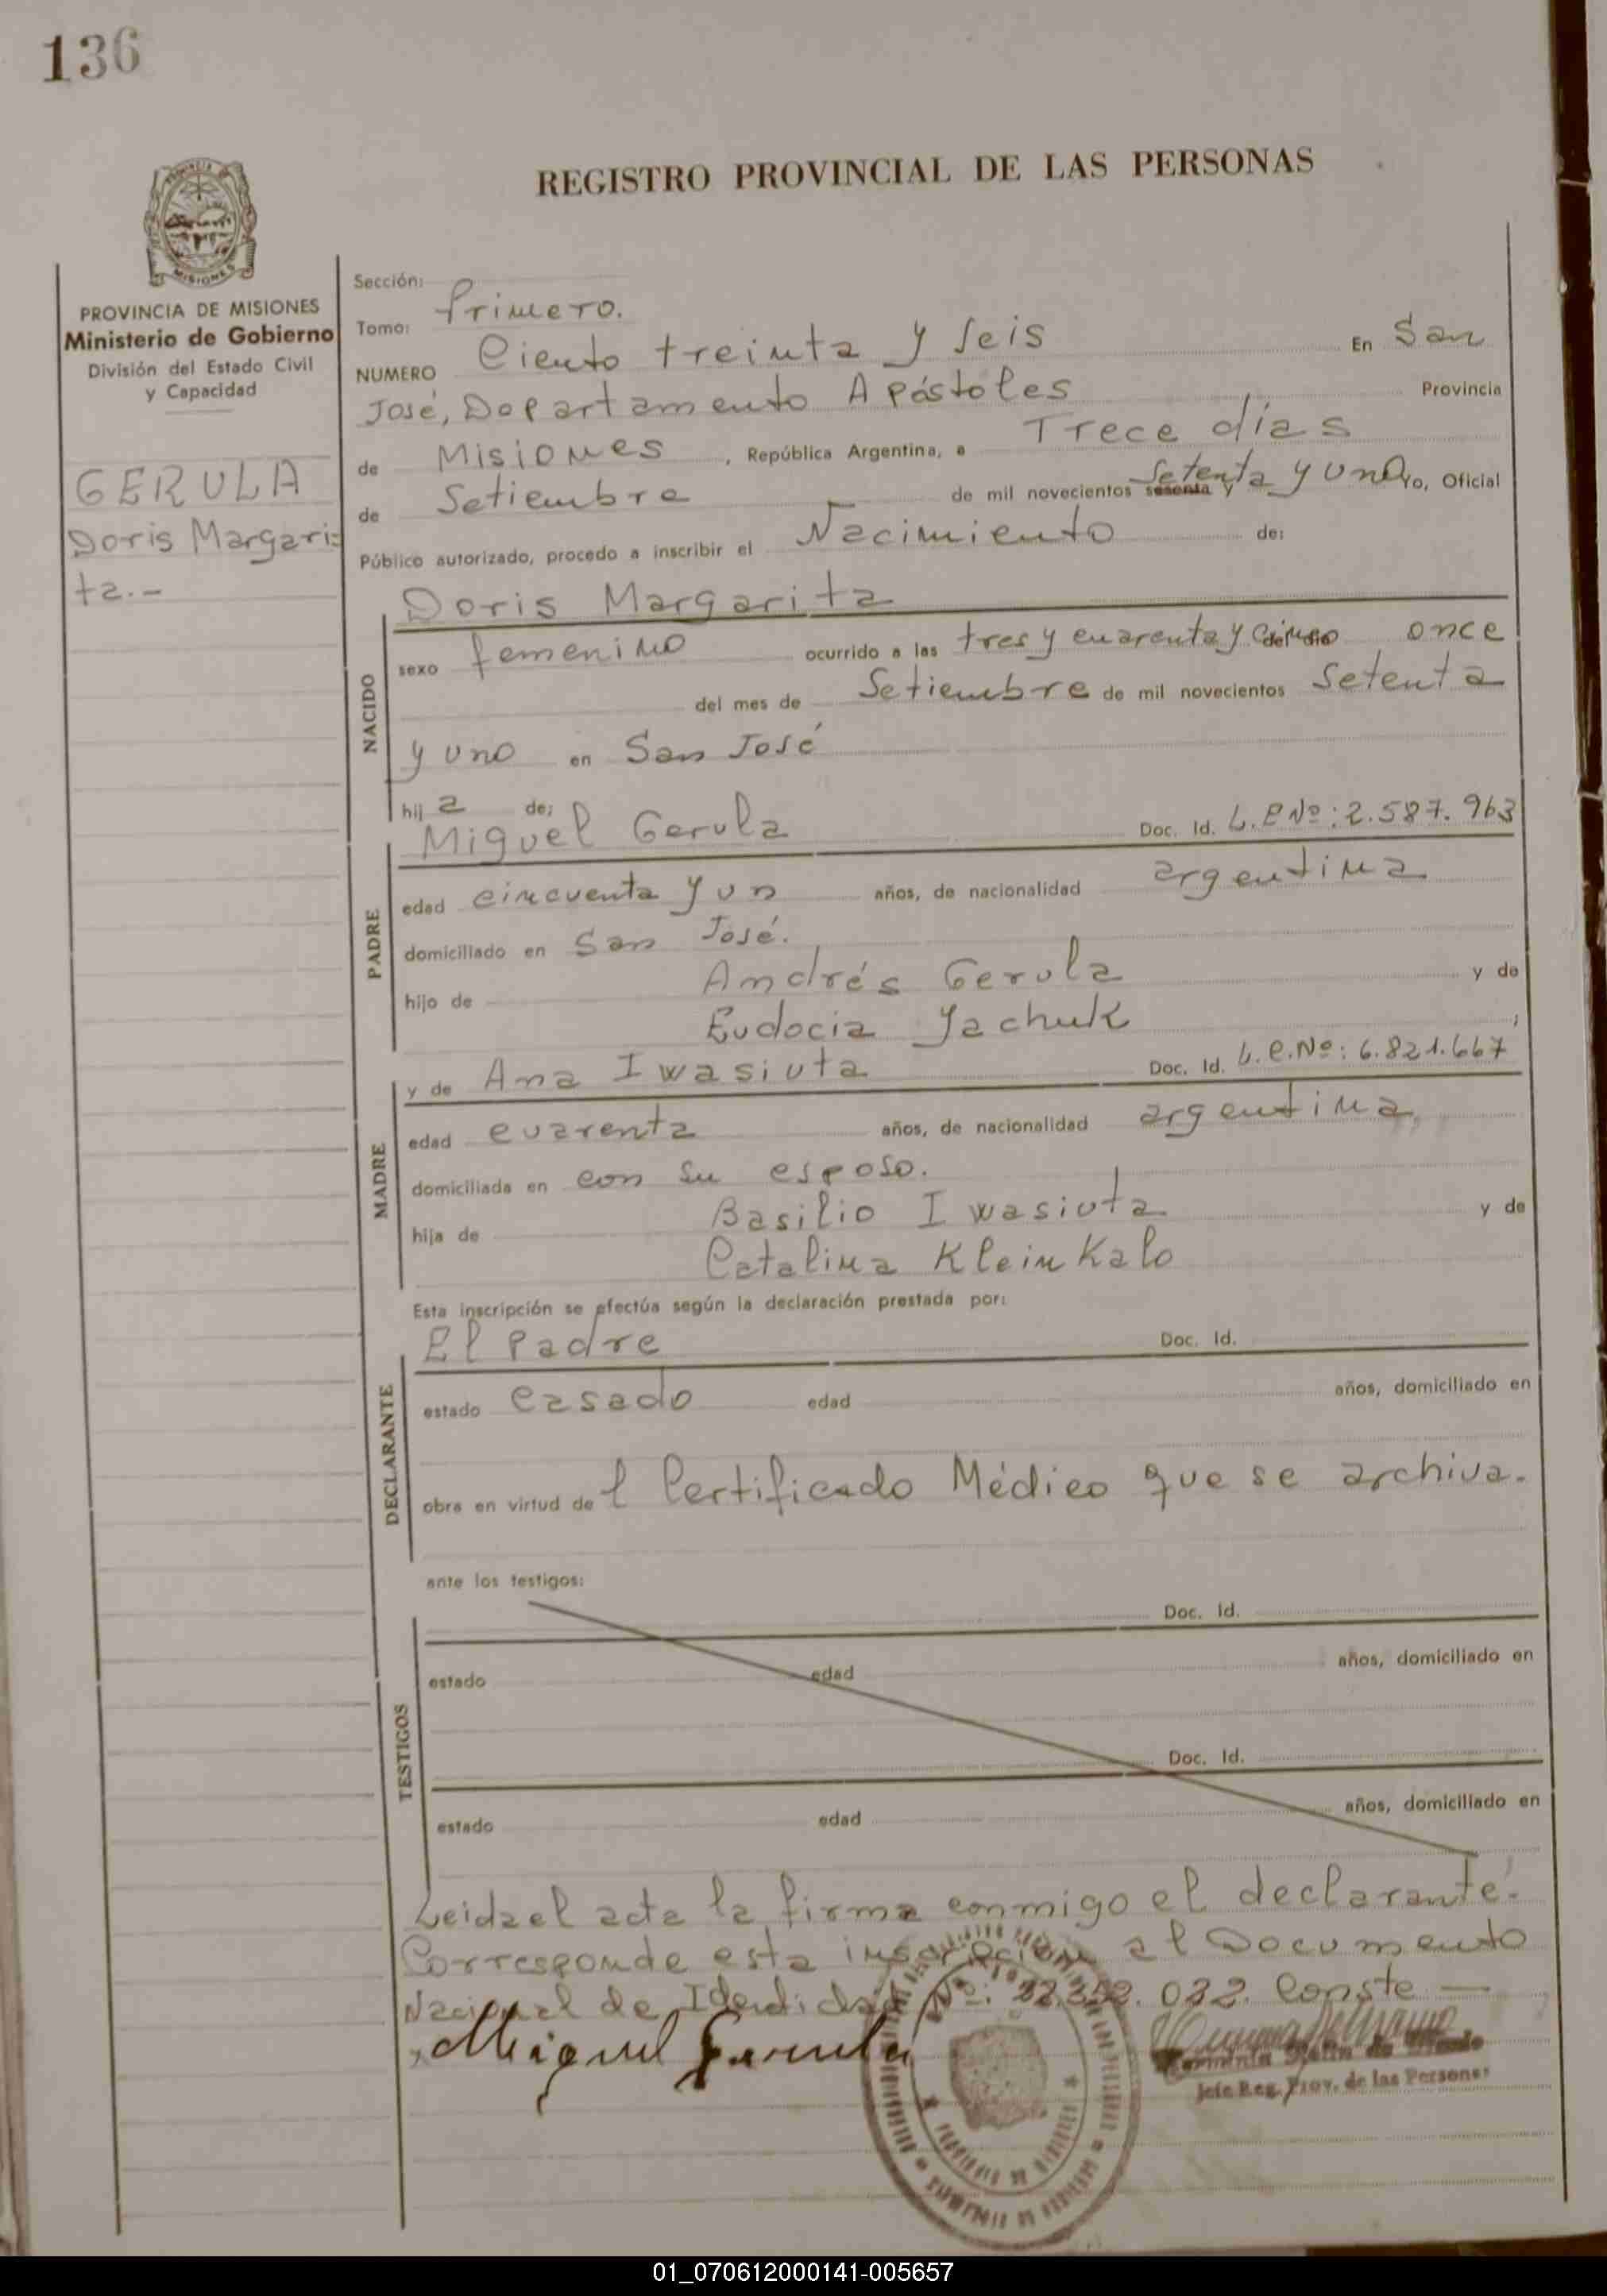 136
REGISTRO PROVINCIAL DE LAS PERSONAS
PROVINCIA DE MISIONES
Ministerio de Gobierno
División del Estado Civil
y Capacidad
GERULA
Doris Margari=
ta.-
Sección:
Tomo: Primero.
NUMERO Ciento treinta y seis En San
José, Departamento Apóstoles Provincia
de Misiones, República Argentina, a Trece días
de Setiembre de mil novecientos sesenta y Setenta y uno yo, Oficial
Público autorizado, procedo a inscribir el Nacimiento de:
Doris Margarita
NACIDO
sexo femenino ocurrido a las tres y cuarenta y cinco del día once
del mes de Setiembre de mil novecientos Setenta
y uno en San José
hij a de:
Miguel Gerula Doc. Id. L.E Nº: 2.587.963
PADRE
edad cincuenta y un años, de nacionalidad argentina
domiciliado en San José.
hijo de Andrés Gerula y de
Eudocia Jachuk ;
y de Ana Iwasiuta Doc. Id. L.C.Nº: 6.821.667
MADRE
edad cuarenta años, de nacionalidad argentina,
domiciliada en con su esposo.
hija de Basilio Iwasiuta y de
Catalina Kleinkalo
Esta inscripción se efectúa según la declaración prestada por:
El Padre Doc. Id.
DECLARANTE
estado casado edad años, domiciliado en
obra en virtud de l Certificado Médico que se archiva.
ante los testigos:
Doc. Id.
TESTIGOS
estado edad años, domiciliado en
Doc. Id.
estado edad años, domiciliado en
Leida el acta la firma conmigo el declarante.
Corresponde esta inscripción al Documento
Nacional de Identidad Nº: 22.352.032. Conste —
Miguel Gerula
Jefe Reg. Prov. de las Personas
01_070612000141-005657